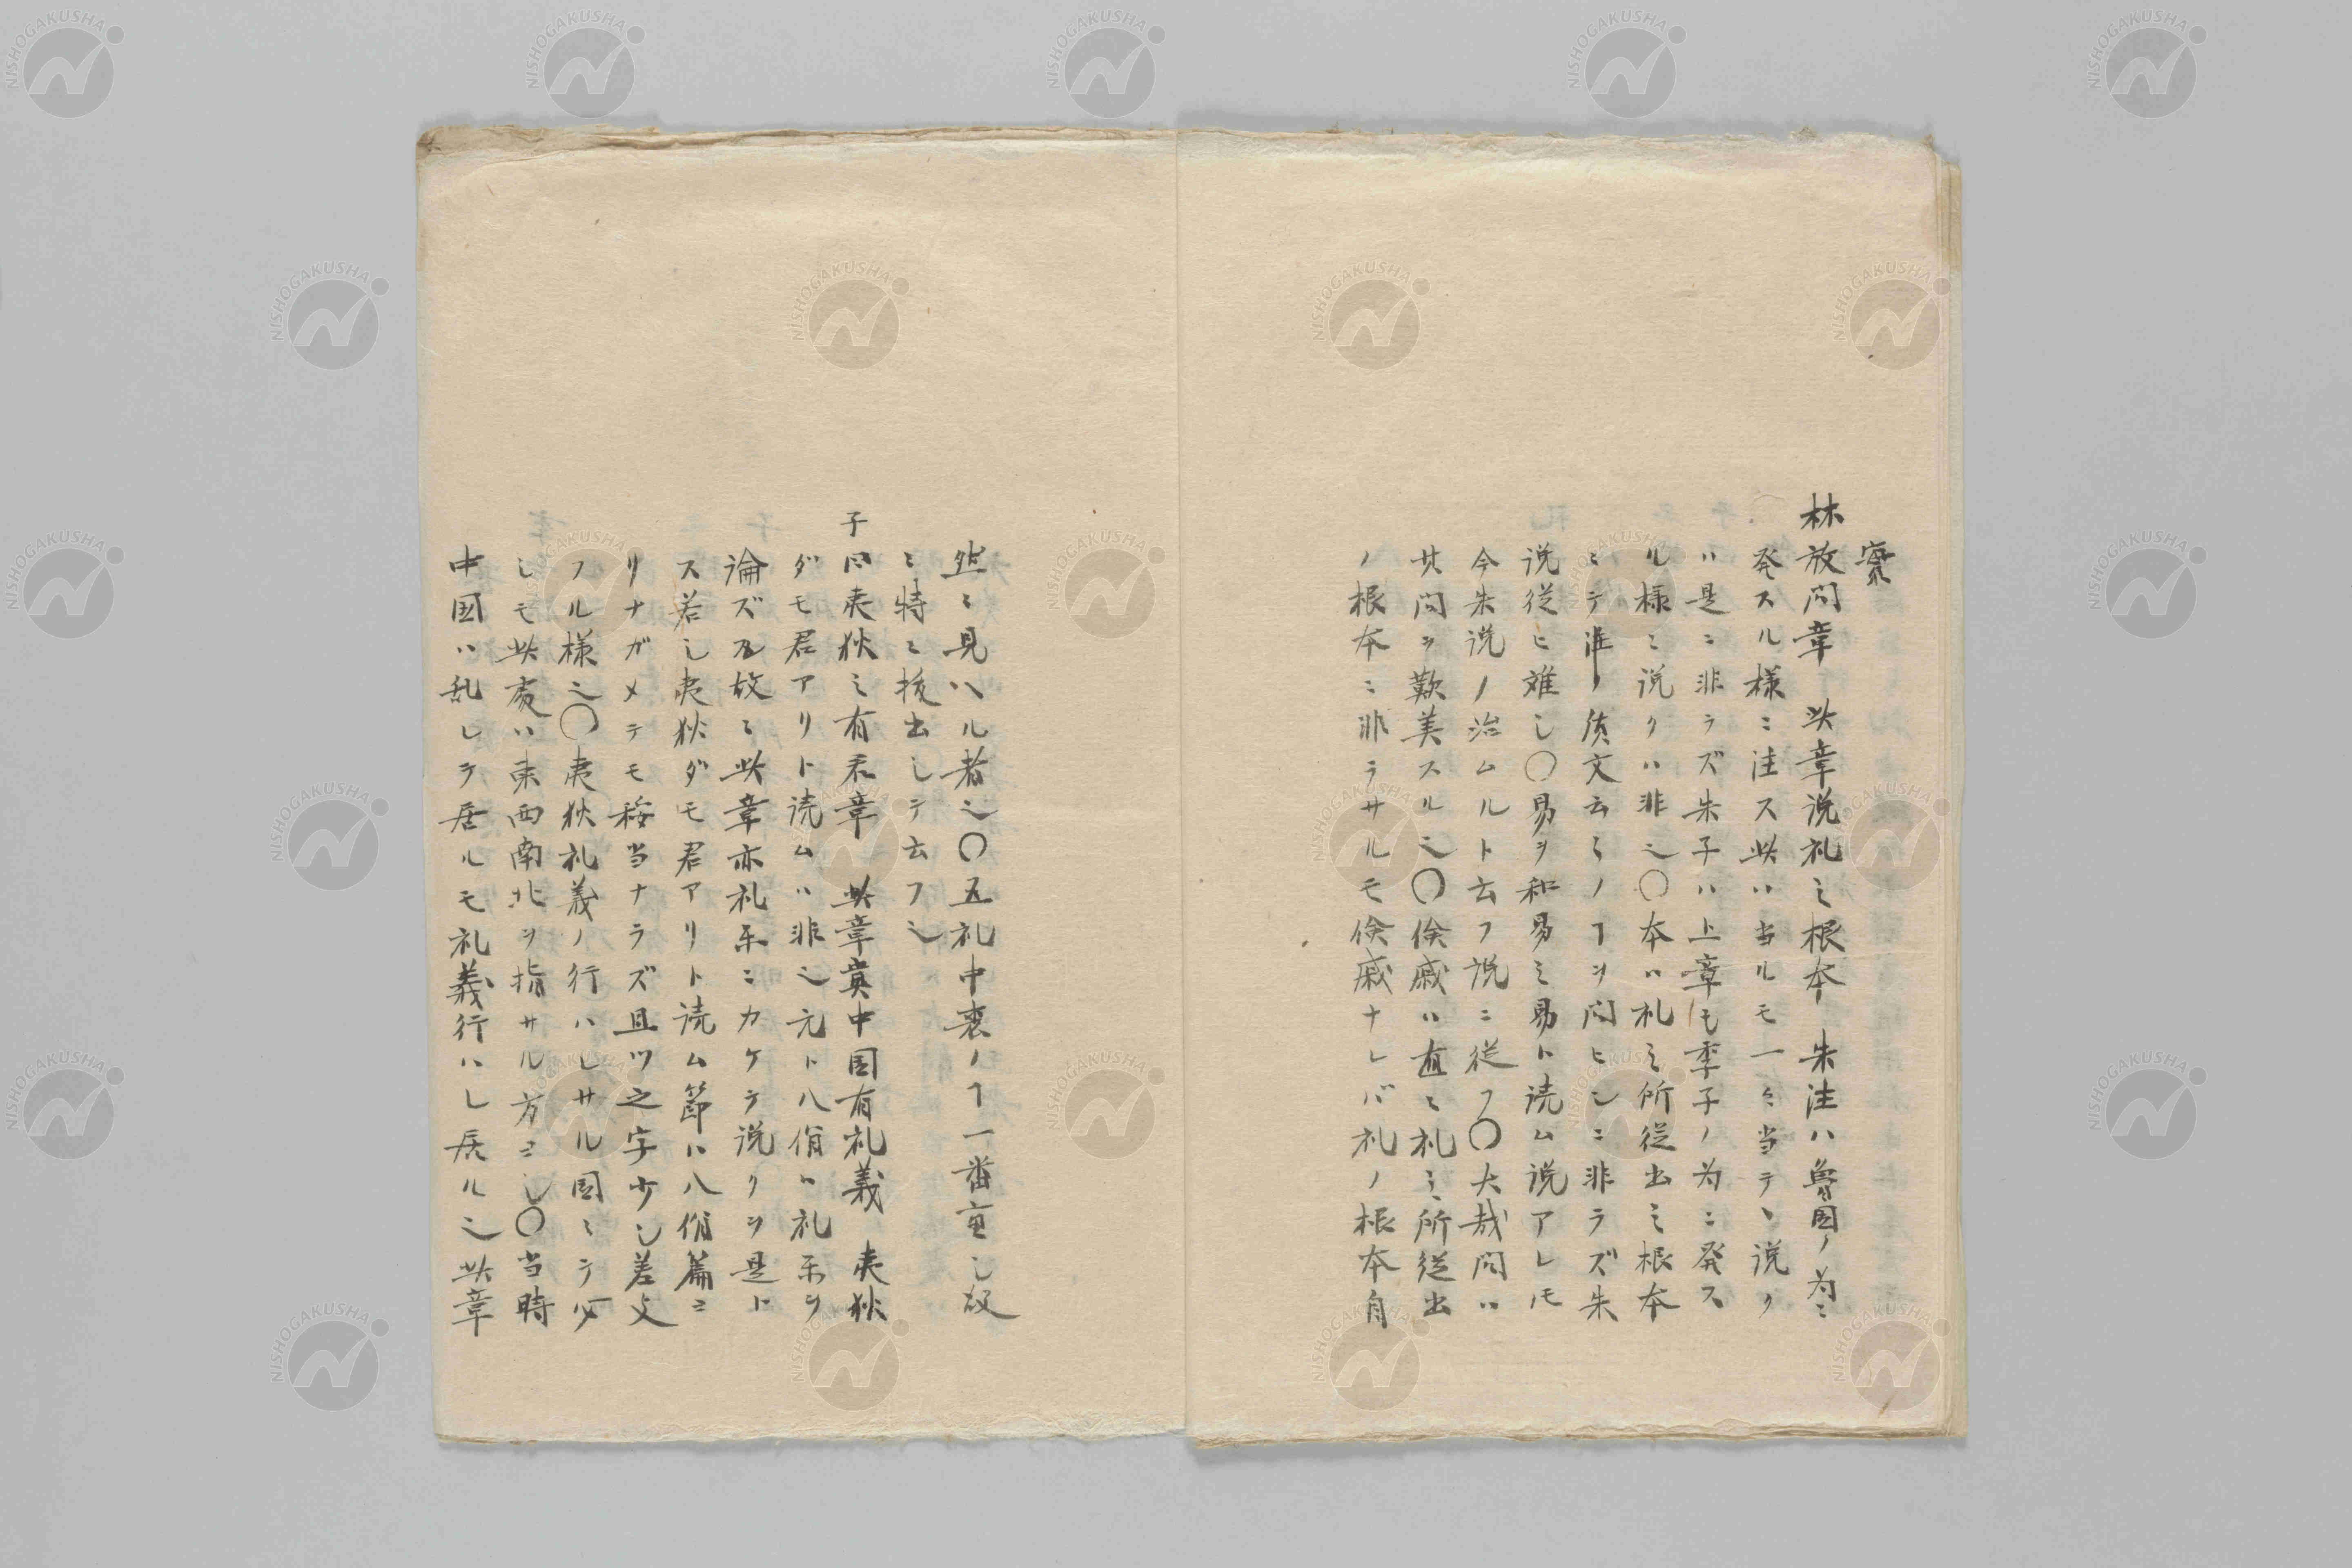 実
林放問章 此章説礼之根本 朱注ハ魯国ノ為ニ
発スル様ニ注ス此ハ当ルモ一々当テヽ説ク
ハ是ニ非ラズ朱子ハ上章モ季子ノ為ニ発ス
ル様ニ説クハ非也〇本ハ礼之所従出之根本
ニテ準ノ質文云々ノヿヲ問ヒシニ非ラズ朱
説従ヒ難シ〇易ヲ和易之易ト読ム説アレ𪜈
今朱説ノ治ムルト云フ説ニ従フ〇大哉問ハ
其問ヲ歎美スル也〇倹戚ハ直ニ礼之所従出
ノ根本ニ非ラサルモ倹戚ナレバ礼ノ根本自
然ニ見ハル者也〇五礼中喪ノヿ一番重し故
ニ特ニ抜出シテ云フ也
子曰夷狄之有君章 此章貴中国有礼義 夷狄
ダモ君アリト読ムハ非也元ト八佾ハ礼楽ヲ
論ズル故ニ此章亦礼楽ニカケテ説クヲ是ト
ス若し夷狄ダモ君アリト読ム節ハ八佾篇ニ
リナガメテモ穏当ナラズ且ツ之字少し差支
フル様也〇夷狄礼義ノ行ハレサル国ニテ必
しモ此処ハ東西南北ヲ指サル方ヨし〇当時
中国ハ乱レテ居ルモ礼義行ハレ居ル也此章